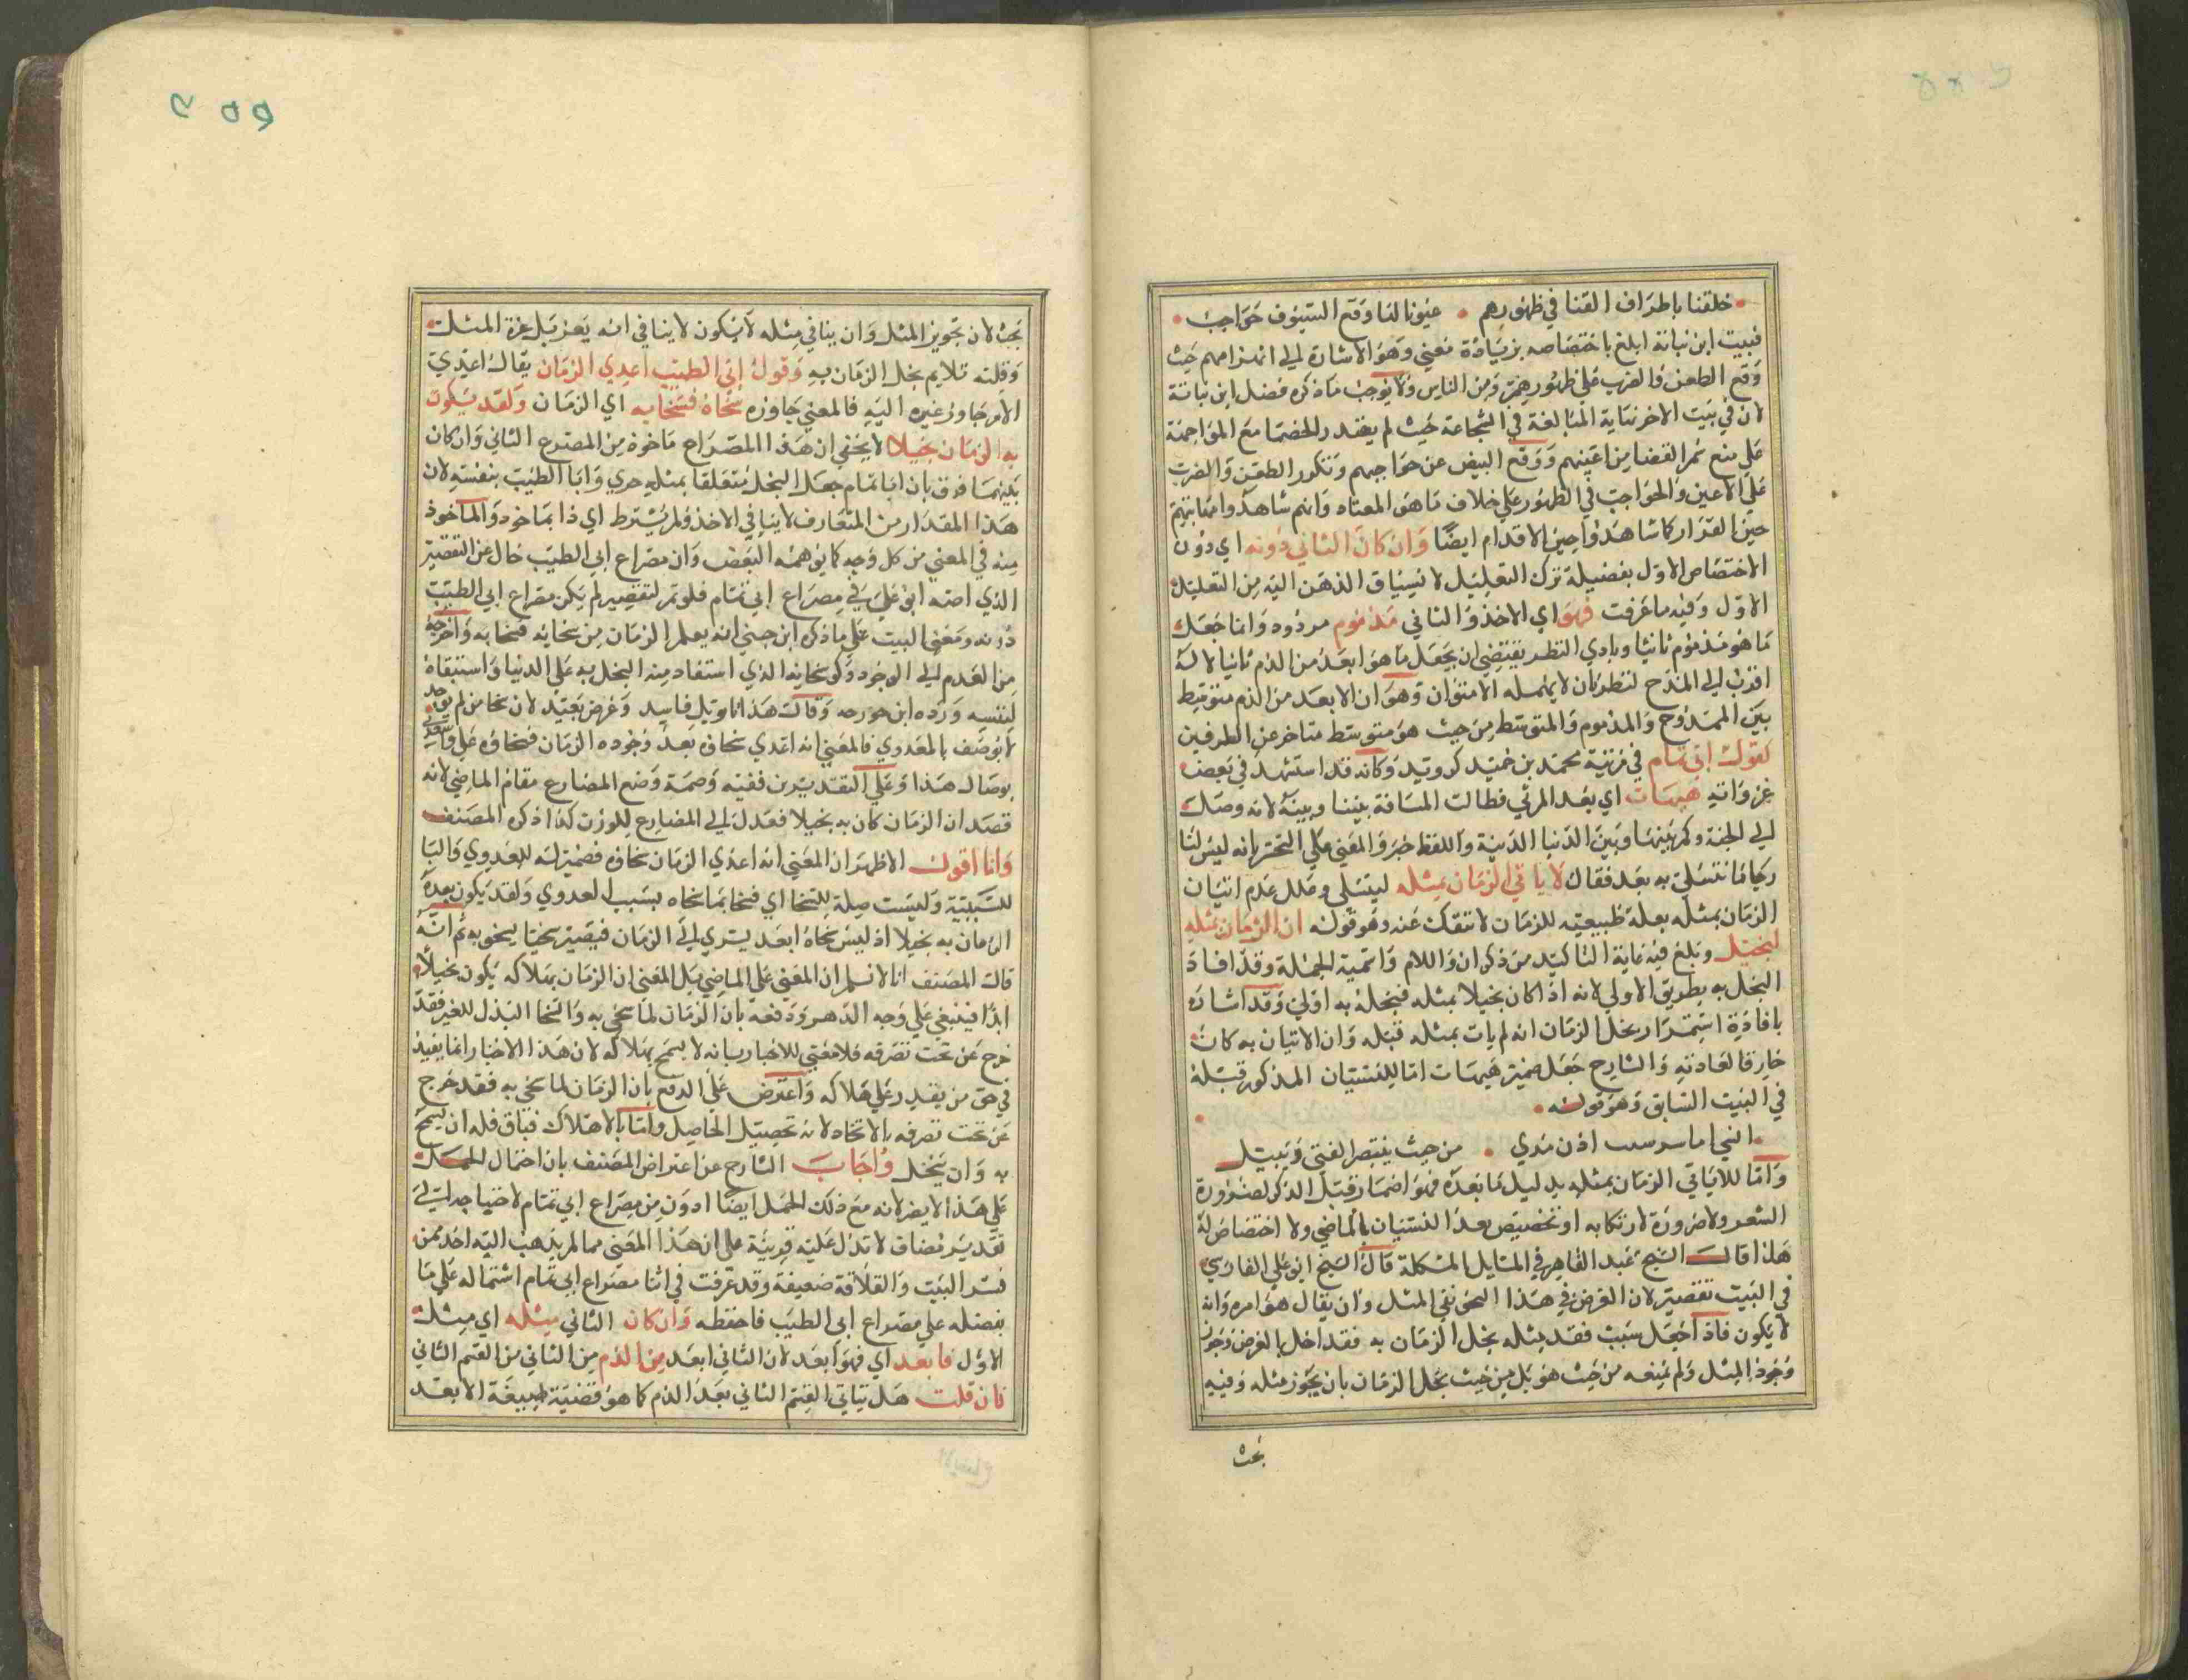 خلقنا باطراف القنا في ظهورهم • عيونا لها وقع السيوف حواجب •
فبيت ابن نباتة ابلغ باختصاصه بزيادة معني وهو الاشارة الي انهزامهم حيث
وقع الطعن والضرب علي ظهورهم ومن الناس ولا يوجب ما ذكره فضل ابن نباتة
لان في بيت الاخر نهاية المبالغة في الشجاعة حيث لم يقدر الخصما مع المواجهة
علي منع سمر القضا من اعينهم ووقع البيض عن حواجبهم وتكور الطعن والضرب
علي الاعين والحواجب في الظهور علي خلاف ما هو المعتاد وانهم شاهدوا مهابتهم
حين الفرار كما شاهدوا حين الاقدام ايضا وان كان الثاني دونه اي دون
الاختصاص الاول بفضيلة ترك التعليل لانسياق الذهن اليه من التعليل
الاول وفيه ما عرفت فهو اي الاخذ والثاني مذموم مردود وانما جعل
ما هو مذموم ثانيا وبادي النظر يقتضي ان يجعل ما هو ابعد من الذم ثانيا لانه
اقرب الي المدح لنظر كان لا يهمله الامتنوان وهو ان الابعد من الذم متوسط
بين الممدوح والمذموم والمتوسط من حيث هو متوسط متاخر عن الطرفين
كقول ابي تمام في مرثية محمد بن حميد كرويد وكانه قد استشهد في بعض
غزواته هيهات اي بعد المرثي فطالت المسافة بيننا وبينه لانه وصل
الي الجنة وكم بينها وبين الدنيا الدنية واللفظ خبر والمعني علي التحسر بانه ليس لنا
رجا ما نتسلي به بعد فقال لا ياتي الزمان بمثله ليتسلي وعلل عدم اتيان
الزمان بمثله بعلة طبيعية للزمان لا تنفك عنه وهو قوله ان الزمان بمثله
لبخيل وبلغ فيه غاية التاكيد من ذكر ان واللام واسمية الجملة وقد افاد
البخل به بطريق الاولي لانه اذا كان بخيلا بمثله فبخله به اولي وقد اشار
بافادة استمرار بخل الزمان انه لم يات بمثله قبله وان الاتيان به كان
خارقا لعادته والشارح جعل ضمير هيهات اما للنسيان المذكور قبله
في البيت السابق وهو قوله •
• انسي ابا نصر نسيت اذن يدي • من حيث ينتصر الفتي وينيل
واما للاياتي الزمان بمثله بدليل ما بعده فهو اضمار قبل الذكر لضرورة
الشعر ولا ضرورة لارتكابه او تخصيص بعد النسيان بالماضي ولا اختصاص له
هذا قال الشيخ عبد القاهر في المسايل المشكلة قال الشيخ ابو علي الفارسي
في البيت تقصير لان الغرض في هذا النحو نفي المثل وان يقال هو امره وانه
لا يكون فاذا جعل سبب فقد مثله بخل الزمان به فقد اخل بالغرض وجوز
وجود المثل ولم يمنعه من حيث هو بل من حيث بخل الزمان بان يجوز مثله وفيه
بحث
بحث لان تجويز المثل وان ينافي مثله لا يكون لا ينافي انه يعز بل عزة المثل
وقلته تلايم بخل الزمان به وقول ابي الطيب اعدي الزمان يقال اعدي
الامر جاوز غيره اليه فالمعني جاوزه سخاه فسخا به اي الزمان ولقد يكون
به الزمان بخيلا لا يخفي ان هذا المصراع ماخوذ من المصرع الثاني وان كان
بينهما فرق بان ابا تمام جعل البخل متعلقا بمثله حري وابا الطيب بنفسه لان
هذا المقدار من المتعارف لا ينافي الاخذ ولم يشترط اي ذا بماخوذ والماخوذ
منه في المعني من كل وجه كما يوهمه البعض وان مصراع ابي الطيب خال عن التقصير
الذي اصته ابو علي في مصراع ابي تمام فلو تم لتقصير لم يكن مصراع ابي الطيب
دونه ومعني البيت علي ما ذكر ابن جني انه يعلم الزمان من سخايه فسخا به واخرجه
من العدم الي الوجود وكو سخايه الذي استفاد منه البخل به علي الدنيا واستبقاه
لنفسه ورده ابن فورجه وقال هذا تاويل فاسد وغرض بعيد لان سخا من لم يوجد
لا يوصف بالعدوي فالمعني انه اعدي سخاؤه بعد وجوده الزمان فسخاؤه علي واسعدني
بوصاله هذا وعلي التقديرين ففيه وصمة وضع المضارع مقام الماضي لانه
قصد ان الزمان كان به بخيلا فعدل الي المضارع للوزن كذا ذكر المصنف
وانا اقول الاظهر ان المعني انه اعدي الزمان سخاؤه فضمير له للعدوي والبا
للسببية وليست صلة للسخا اي فسخا بما سخاه بسبب العدوي ولقد يكون بعده
الزمان به بخيلا اذ ليس سخاه ابعد يسري الي الزمان فيصير سخيا يسخو به ثم انه
قال المصنف انا لا نسلم ان المعني علي الماضي بل المعني ان الزمان بهلاكه يكون بخيلا
ابدا فينبغي علي وجه الدهر ودفعه بان الزمان لما سخي به والسخا البذل للغير فقد
خرج عن تحت تصرفه فلا معني للاخبار بانه لا يسمح بهلاكه لان هذا الاخبار انما يفيد
في حق من يقدر علي هلاكه واعترض علي الدفع بان الزمان لما سخي به فقد خرج
عن تحت تصرفه بالاتخاد لانه تحصيل الحاصل واما بالاهلاك فباق فله ان يسمح
به وان يبخل واجاب الشارح عن اعتراض المصنف بان احتمال الحمل
علي هذا لا يضر لانه مع ذلك الحمل ايضا ادون من مصراع ابي تمام لاحتياجه الي
تقدير مضاف لا تدل عليه قرينة علي ان هذا المعني مما لم يذهب اليه احد ممن
فسر البيت والعلاقة ضعيفة وقد عرفت في اثنا مصراع ابي تمام اشتماله علي ما
بفضله علي مصراع ابي الطيب فاحفظه وان كان الثاني مثله اي مثل
الاول فابعد اي فهو ابعد لان الثاني ابعد من الذم من الثاني من القسم الثاني
فان قلت هل ياتي القسم الثاني بعد الذم كما هو قضية صيغة الابعد